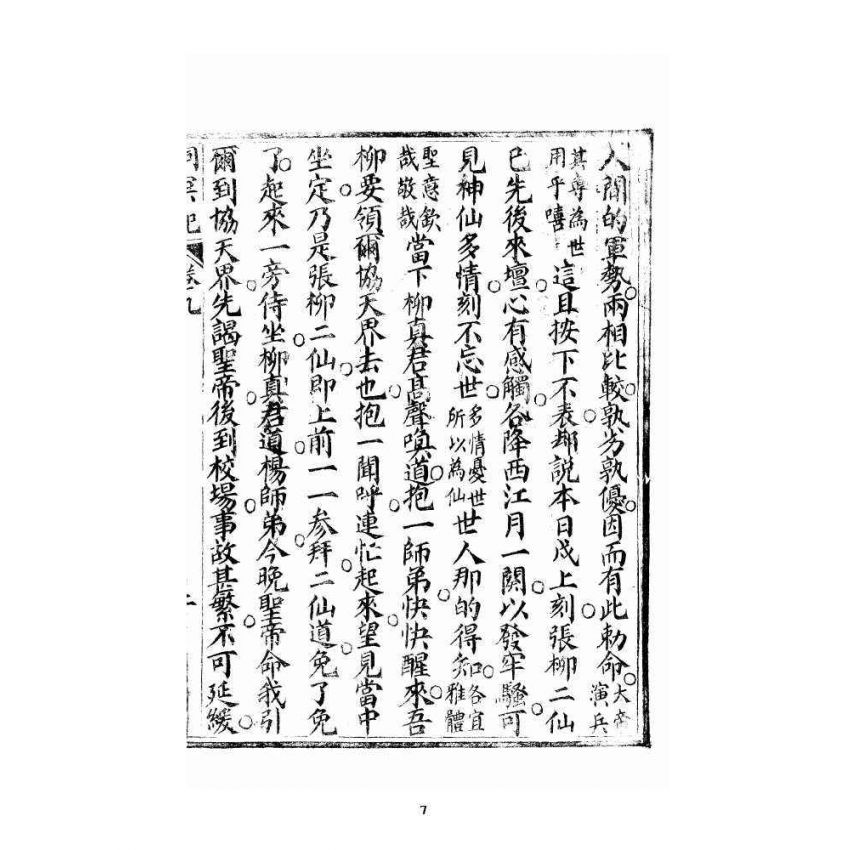 人間的軍勢兩相比較孰劣孰優因而有此勅命大帝演兵
其尊為世用乎嘻這且按下不表却說本日戌上刻張柳二仙
已先後來壇心有感觸各降西江月一闋以發牢騷可
見神仙多情刻不忘世多情憂世所以為仙世人那的得知各宜雅體
聖意欽哉敬哉當下柳真君高聲喚道抱一師弟快快醒來吾
柳要領爾協天界去也抱一聞呼連忙起來望見當中
坐定乃是張柳二仙即上前一一参拜二仙道免了免
了起來一旁侍坐柳真君道楊師弟今晚聖帝命我引
爾到協天界先謁聖帝後到校場事故甚繁不可延緩
洞冥記 卷九
7